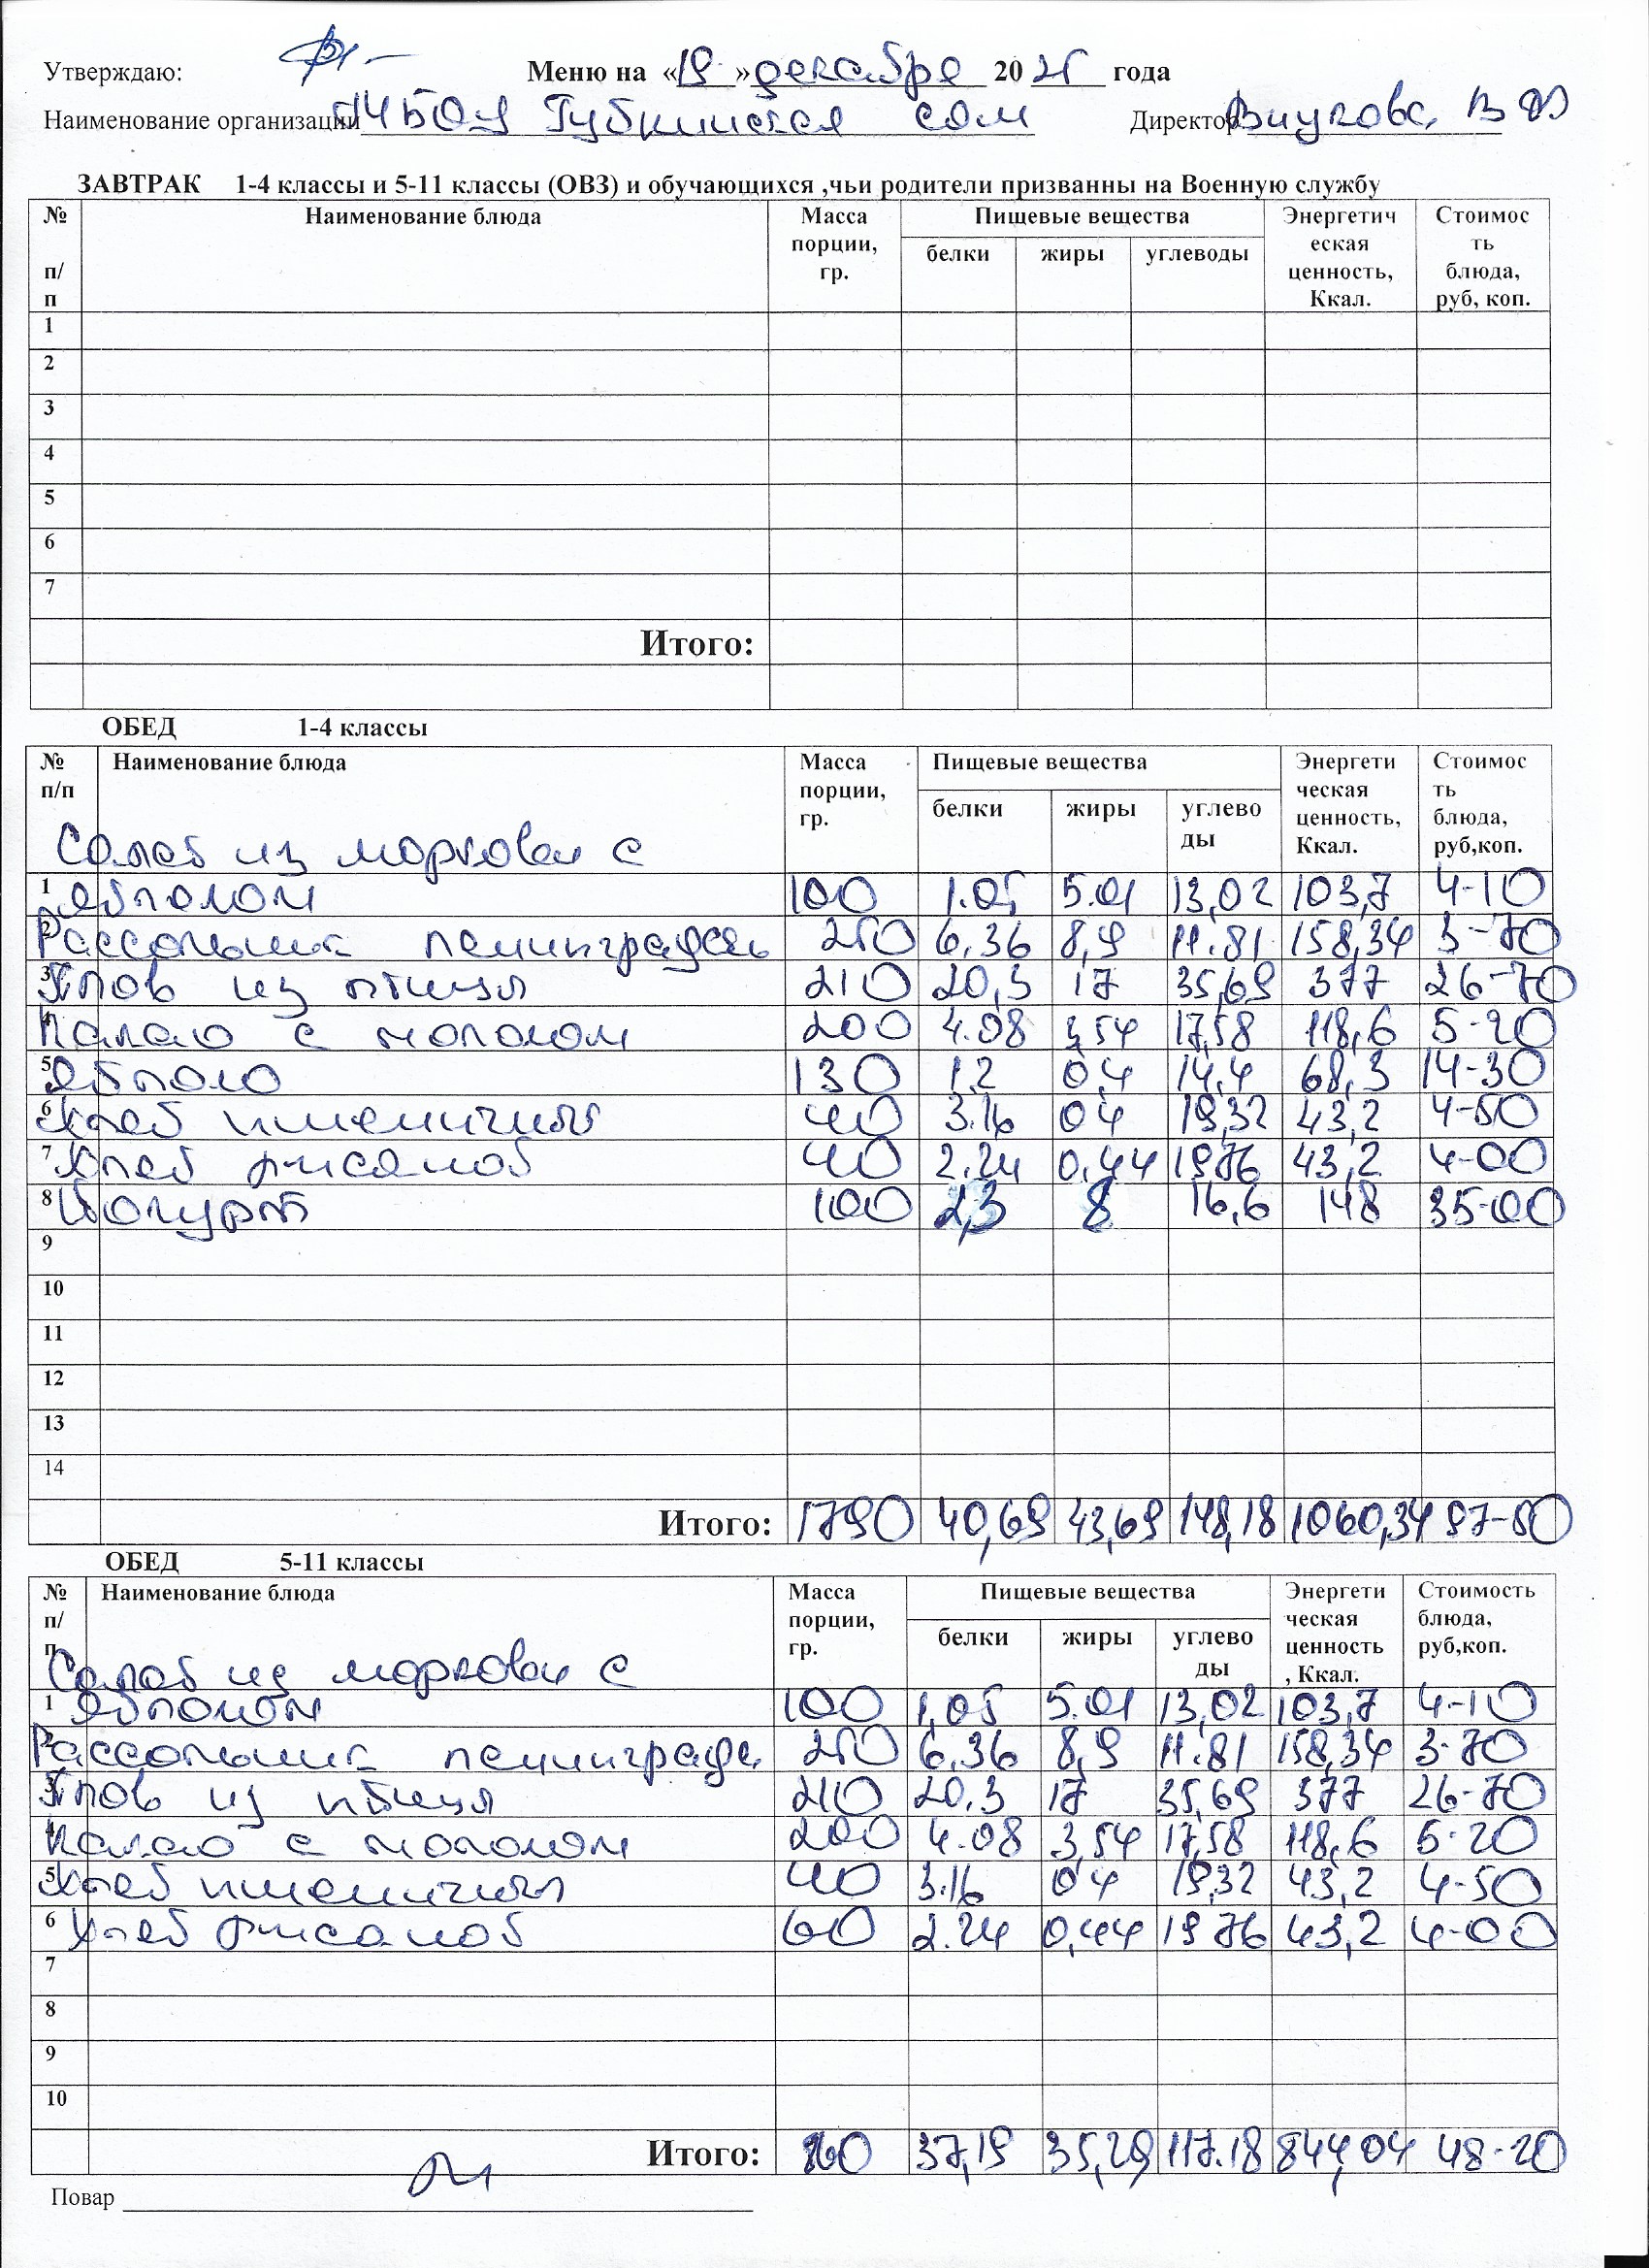 Утверждаю: Меню на «19» декабря 2025 года
Наименование организации МБОУ Губкинская СОШ Директор В
ЗАВТРАК 1-4 классы и 5-11 классы (ОВЗ) и обучающихся ,чьи родители призванны на Военную службу
№ п/п Наименование блюда Масса порции, гр. Пищевые вещества Энергетическая ценность, Ккал. Стоимость блюда, руб, коп.
белки жиры углеводы
1
2
3
4
5
6
7
Итого:
ОБЕД 1-4 классы
№ п/п Наименование блюда Масса порции, гр. Пищевые вещества Энергетическая ценность, Ккал. Стоимость блюда, руб,коп.
белки жиры углеводы
Салат из моркови с
1 яблоком 100 1.05 5.01 13,02 103,7 4-10
2 Рассольник ленинградск 250 6,36 8,9 11.81 158,34 3-70
3 Плов из птицы 210 20,3 17 35,69 377 26-70
4 Какао с молоком 200 4.08 3,54 17,58 118,6 5-20
5 Яблоко 130 1,2 0,4 14,4 68,3 14-30
6 Хлеб пшеничный 40 3.16 04 19,32 43,2 4-50
7 Хлеб ржаной 40 2.24 0,44 19,76 43,2 4-00
8 Йогурт 100 2,3 8 16,6 148 35-00
9
10
11
12
13
14
Итого: 1790 40,69 43,69 148,18 1060,34 97-50
ОБЕД 5-11 классы
№ п/п Наименование блюда Масса порции, гр. Пищевые вещества Энергетическая ценность, Ккал. Стоимость блюда, руб,коп.
белки жиры углеводы
Салат из моркови с
1 яблоком 100 1,05 5.01 13,02 103,7 4-10
2 Рассольник ленинградс 250 6,36 8,9 11.81 158,34 3-70
3 Плов из птицы 210 20,3 17 35,69 377 26-70
4 Какао с молоком 200 4.08 3,54 17,58 118,6 5-20
5 Хлеб пшеничный 40 3.16 04 19,32 43,2 4-50
6 Хлеб ржаной 60 2.24 0,44 19 76 43,2 4-00
7
8
9
10
Итого: 860 37,19 35,29 117.18 844,04 48-20
Повар